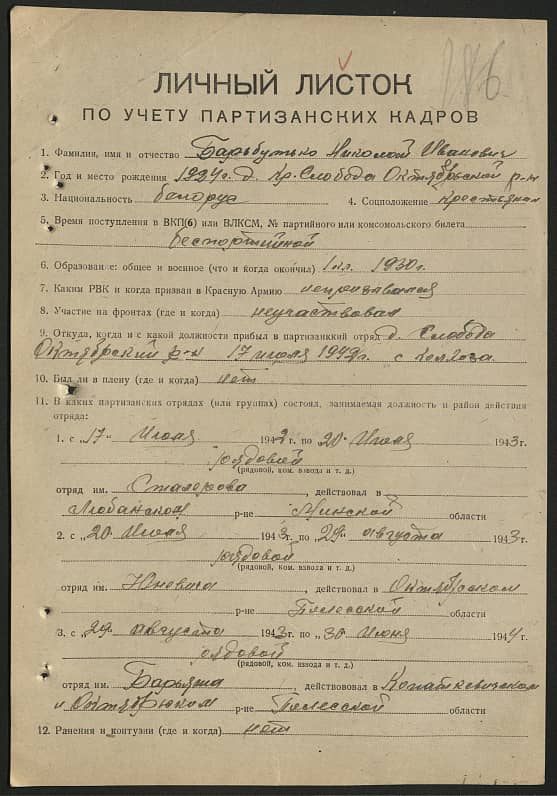 ЛИЧНЫЙ ЛИСТОК
ПО УЧЕТУ ПАРТИЗАНСКИХ КАДРОВ
1. Фамилия, имя и отчество Барыбутько Николай Иванович
2. Год и место рождения 1924г. д. Кр. Слобода Октябрьской р-н
3. Национальность белорус 4. Соцположение Крестьянин
5. Время поступления в ВКП(б) или ВЛКСМ, № партийного или комсомольского билета
беспартийной
6. Образование: общее и военное (что и когда окончил) 1кл. 1930г.
7. Каким РВК и когда призван в Красную Армию непризывался
8. Участие на фронтах (где и когда) неучаствовал
9. Откуда, когда и с какой должности прибыл в партизанский отряд д. Слобода
Октябрский р-н 17 июля 1942г. с колхоза
10. Был ли в плену (где и когда) нет
11. В каких партизанских отрядах (или группах) состоял, занимаемая должность и район действия
отряда:
1. с „17" Июля 1942 г. по 20 Июля 1943г.
рядовой
(рядовой, ком. взвода и т. д.)
отряд им. , действовал в
Любанском р-не Минской области
2. с „20 Июля 1943г. по „29 августа 1943г.
рядовой
(рядовой, ком. взвода и т. д.)
отряд им. , действовал в Октябрьском
р-не Полесской области
3. с „29 августа 1943г. по „30 Июня 1944г.
рядовой
(рядовой, ком. взвода и т. д.)
отряд им. , действовал в Копаткевичском
и Октябрьским р-не Полесской области
12. Ранения и контузии (где и когда) нет